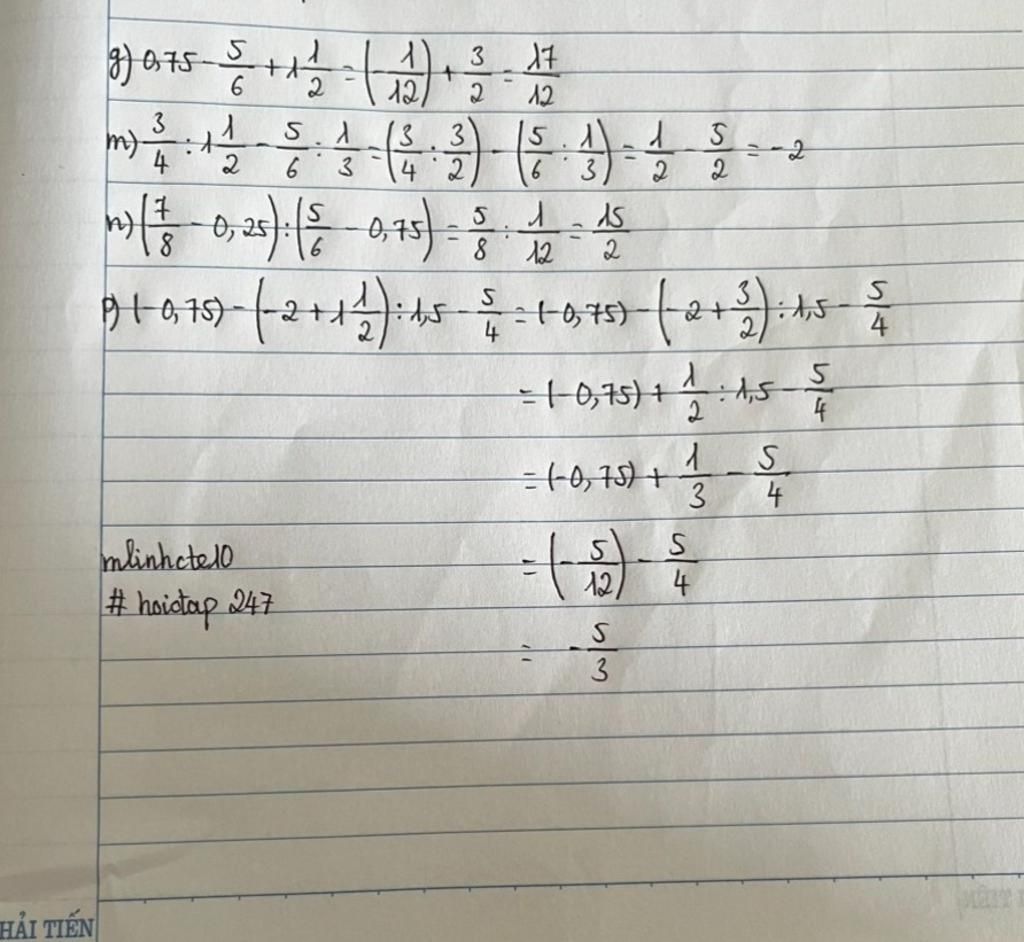 g) 0,75 - 5/6 + 1 1/2 = (-1/12) + 3/2 = 17/12
m) 3/4 : 1 1/2 - 5/6 : 1/3 = (3/4 : 3/2) - (5/6 : 1/3) = 1/2 - 5/2 = -2
n) (7/8 - 0,25) : (5/6 - 0,75) = 5/8 : 1/12 = 15/2
p) (-0,75) - (-2 + 1 1/2) : 1,5 - 5/4 = (-0,75) - (-2 + 3/2) : 1,5 - 5/4
= (-0,75) + 1/2 : 1,5 - 5/4
= (-0,75) + 1/3 - 5/4
= (-5/12) - 5/4
= -5/3
mlinhcte10
# hoidap 247
HẢI TIẾN